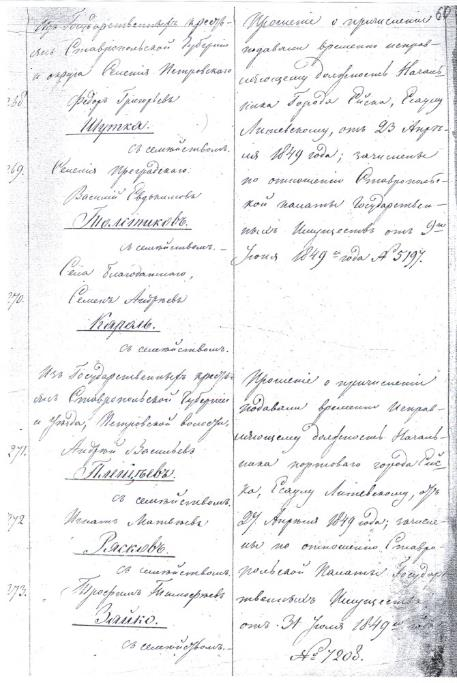 60
Изъ Государственныхъ кресть-
янъ Ставропольской Губерніи
и округа Селенія Петровскаго
268. Ѳедоръ Григорьевъ
Шутка.
съ семействомъ.
269. Селенія Преградскаго
Василій Евдокимовъ
Толстиковъ.
съ семействомъ.
Села Благодатнаго,
270. Семенъ Андреевъ
Кароль.
съ семействомъ.
Изъ Государственныхъ кресть-
янъ Ставропольской Губерніи
и уѣзда, Петровской волости,
271. Андрей Васильевъ
съ семействомъ.
272 Игнатъ Матвѣевъ
Рясковъ.
съ семействомъ.
273. Трофимъ Тимофѣевъ
Зайко.
съ семействомъ.
Прошеніе о причисленіи
подавали временно исправ-
ляющему должность Началь-
ника Города Ейска, Есаулу
Литевскому, отъ 23 Апрѣ-
ля 1849 года; зачислены
по отношенію Ставрополь-
ской палаты Государствен-
ныхъ Имуществъ отъ 9го
Іюня 1849го года № 5197.
Прошеніе о причисленіи
подавали временно Исправ-
ляющему должность Началь-
ника портоваго города Ейс-
ка, Есаулу Литевскому, отъ
27 Апреля 1849 года; зачисле-
ны по отношенію Ставро-
польской Палаты Государ-
ственныхъ Имуществъ
отъ 31 Іюля 1849го года
№ 7208.